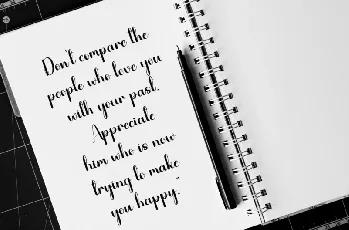 Don't compare the
people who love you
with your past.
Appreciate
him who is now
trying to make
you happy."